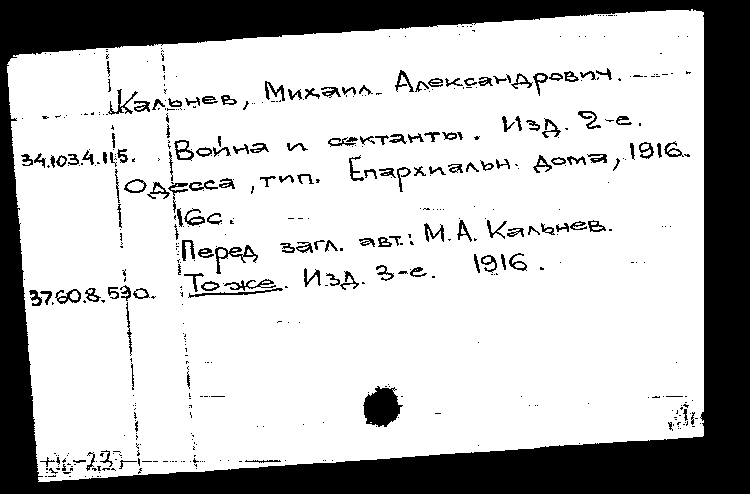 Кальнев, Михаил Александрович.
34.103.4.115. Война и сектанты. Изд. 2-е.
Одесса, тип. Епархиальн. дома, 1916.
16с.
Перед загл. авт.: М.А. Кальнев.
37.60.8.590. То же. Изд. 3-е. 1916.